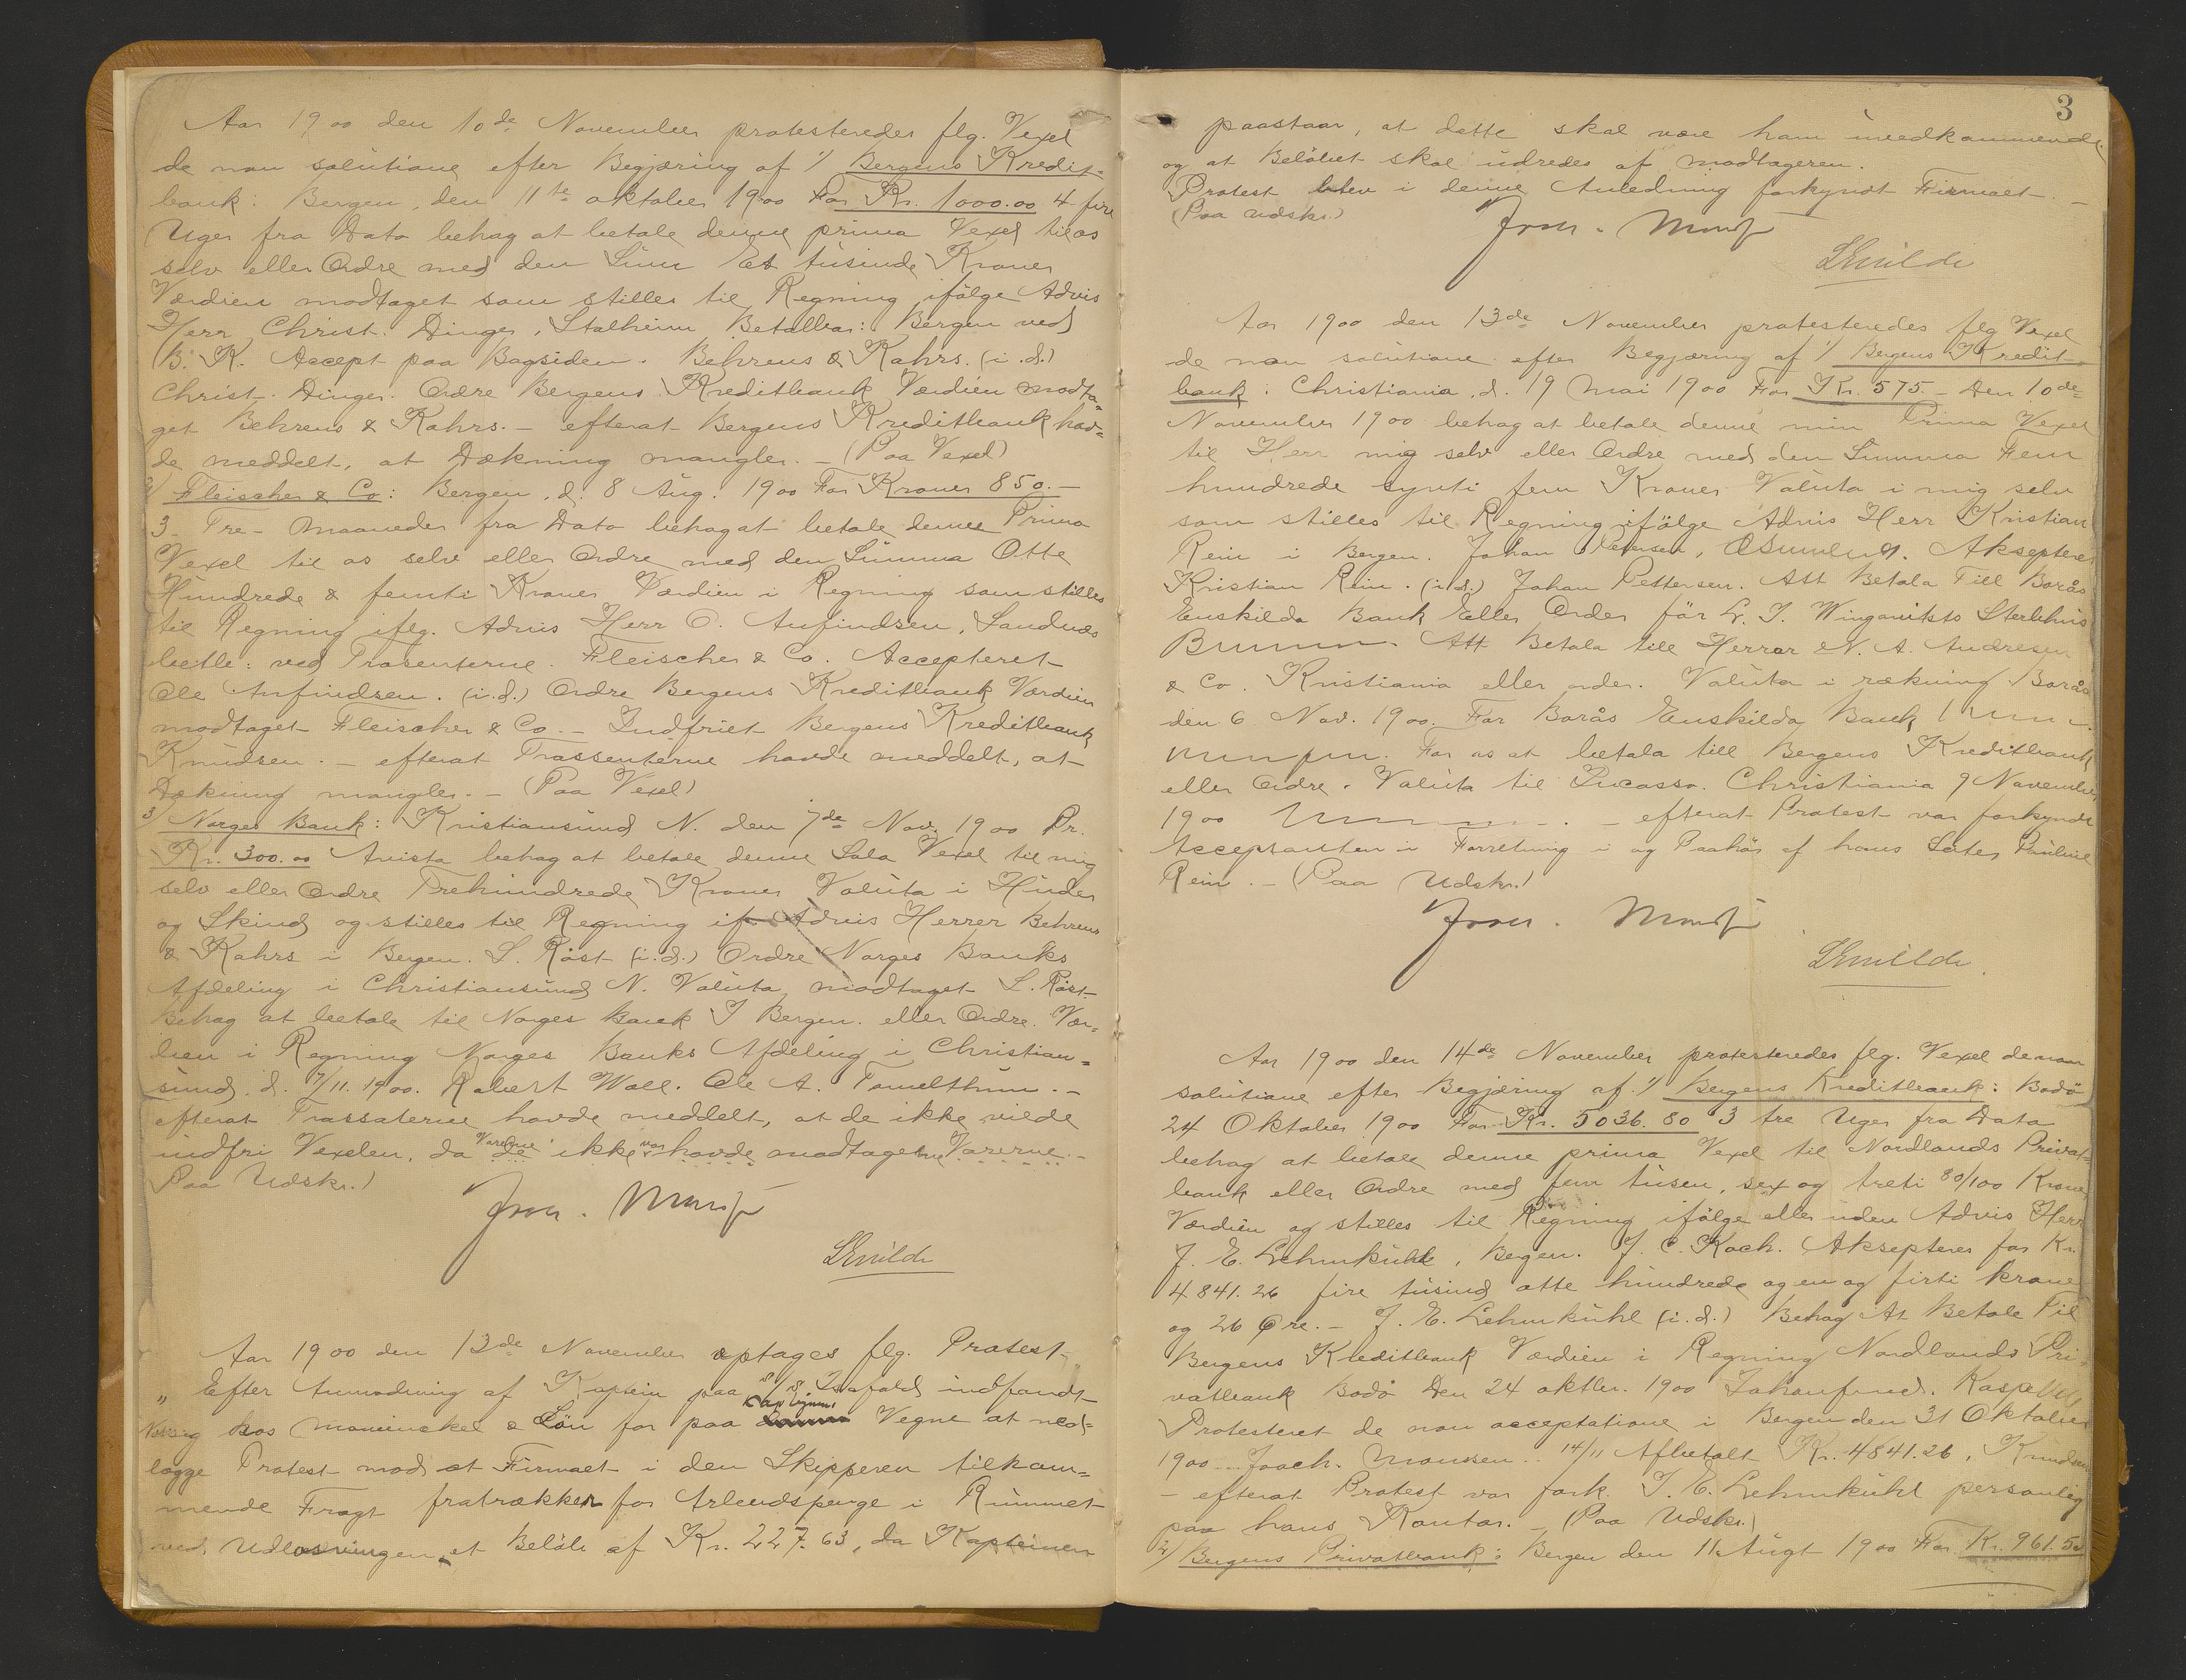 Aar 1900 den 10de November protesteredes flg. Vexel
de non solutione efter Begjæring af 1/ Bergens Kredit-
bank: Bergen, den 11te oktober 1900 For Kr. 1000.00 4 fire
Uger fra Dato behag at betale denne prima Vexel til os
selv eller Ordre med den Sum Et tusinde Kroner
Værdien modtaget som stilles til Regning ifölge Advis
Herr Christ. Dinger, Stalheim Betalbar: Bergen ved
B. K. Accept paa Bagsiden. Behrens & Kahrs. (i.d.)
Christ. Dinger. Ordre Bergens Kreditbank Værdien modta-
get Behrens & Kahrs. – efterat Bergens Kreditbank hav-
de meddelt, at Dækning mangler. – (Paa Vexel)
2/ Fleischer & Co: Bergen, d. 8 Aug. 1900 For Kroner 850.–
3 – Tre – Maaneder fra Dato behag at betale denne Prima
Vexel til os selv eller Ordre med den Summa Otte
Hundrede & femti Kroner Værdien i Regning som stilles
til Regning iflg. Advis Herr O. Anfindsen, Sandnæs
betlb: ved Trasenterne. Fleischer & Co. Accepteret
Ole Anfindsen. (i.d.) Ordre Bergens Kreditbank Værdien
modtaget Fleischer & Co. – Indfriet Bergens Kreditbank
Knudsen. – efterat Trassenterne havde meddelt, at
Dækning mangler. – (Paa Vexel)
3/ Norges Bank: Kristiansund N. den 7de Nov. 1900 Pr.
Kr. 300.00 Avista behag at betale denne Sola Vexel til mig
selv eller Ordre Trehundrede Kroner Valuta i Huder
og Skind og stilles til Regning if. Advis Herrer Behrens
& Kahrs i Bergen. L. Röst (i.d.) Ordre Norges Banks
Afdeling i Christiansund N. Valuta modtaget L. Röst
Behag at betale til Norges Bank I Bergen. eller Ordre. Vær-
dien i Regning Norges Banks Afdeling i Christian-
sund. d. 7/11. 1900. Robert Wall. Ole A. –
efterat Trassaterne havde meddelt, at de ikke vilde
indfri Vexelen, da Varerne de ikke var havde modtagetne Varerne. –
Paa Udskr.)
Joach. Mons
LEmilde
Aar 1900 den 13de November optages flg. Protest
„ Efter Anmodning af Kaptein paa s/s. indfandt
kos & Sön for paa Kapteinens Vegne at ned-
lægge Protest mod at Firmaet i den Skipperen tilkom-
mende Fragt fratrækker for Arbeidspenge i Rummet
ved Udlosningen et Belöb af Kr. 227.63, da Kapteinen
3
paastaar, at dette skal være ham uvedkommende
og at Belöbet skal udredes af modtageren.
Protest blev i denne Anledning forkyndt Firmaet. –
(Paa Udskr.)
Joach. Mons
LEmilde
Aar 1900 den 13de November protesteredes flg Vexel
de non solutione efter Begjæring af 1/ Bergens Kredit-
bank: Christiania, d. 19 Mai 1900 For Kr. 575 – Den 10de
November 1900 behag at betale denne min Prima Vexel
til Herr mig selv eller Ordre med den Summa Fem
hundrede sytti fem Kroner Valuta i mig selv
som stilles til Regning ifölge Advis Herr Kristian
Rein i Bergen. Johan Petersen, Aksepteres
Kristian Rein. (i.d.) Johan Pettersen. Att Betala Till Borås
Enskilda Bank Eller Order för
Att Betala till Herrar N. A. Andresen
& Co. Kristiania eller order. Valuta i räkning Borås
den 6 Nov. 1900. For Borås Enskilda Bank
For os at betala till Bergens Kreditbank
eller Ordre. Valuta til Incasso. Christiania 9 November
1900 – efterat Protest var forkyndt
Acceptanten i Forretning i og Paahör af hans Sester Pauline
Rein. – (Paa Udskr.)
Joach. Mons
LEmilde.
Aar 1900 den 14de November protesteredes flg. Vexel de non
solutione efter Begjæring af 1/ Bergens Kreditbank: Bodö
24 Oktober 1900 For Kr. 5036.80 3 tre Uger fra Dato
behag at betale denne prima Vexel til Nordlands Privat-
bank eller Ordre med fem tusen, sex og treti 80/100 Kroner
Værdien og stilles til Regning ifölge eller uden Advis Herr
J. E. Lehmkühl, Bergen. J. C. Koch. Aksepteres for Kr.
4841.26 fire tusind otte hundrede og en og firti kroner
og 26 Øre. – J. E. Lehmkühl (i.d.) Behag At Betale Til
Bergens Kreditbank Værdien i Regning Nordlands Pri-
vatbank Bodö Den 24 oktbr. 1900
Protesteret de non acceptatione i Bergen den 31 Oktober
1900 Joach. Monssen. 14/11 Afbetalt Kr. 4841.26, Knudsen
– efterat Protest var fork. J. E. Lehmkühl personlig
paa hans Kontor. – (Paa Udskr.)
2/ Bergens Privatbank: Bergen den 11 Augt 1900 For Kr. 961.50